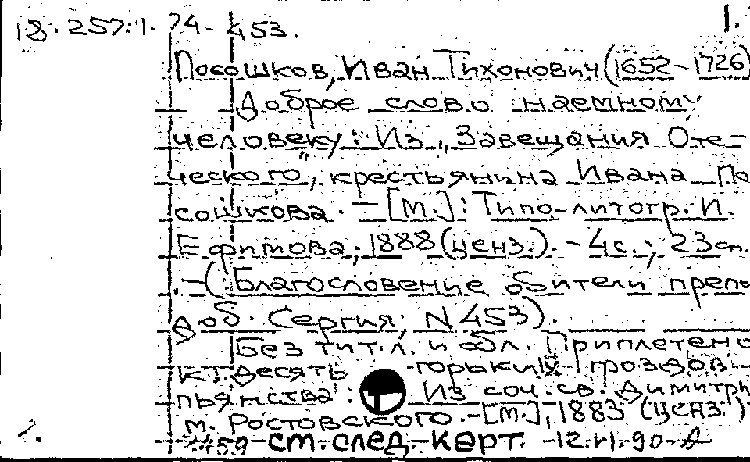 18.257.1.74-453. 1.
Посошков, Иван Тихонович (1652-1726)
Доброе слово наемному
человеку: Из „Завещания Оте-
ческого", крестьянина Ивана По
сошкова. - [М.]: Типо-литогр. И.
Ефимова, 1888 (ценз.). - 4с.; 23см.
.-(Благословение обители преп
доб. Сергия; N 453).
Без тит.л. и обл. Приплетено
к т.: Десять горьких гроздов
пьянства: Из соч. св. Димитри
м. Ростовского. - [М.], 1883 (ценз.)
см. след. карт. 12.VI.90